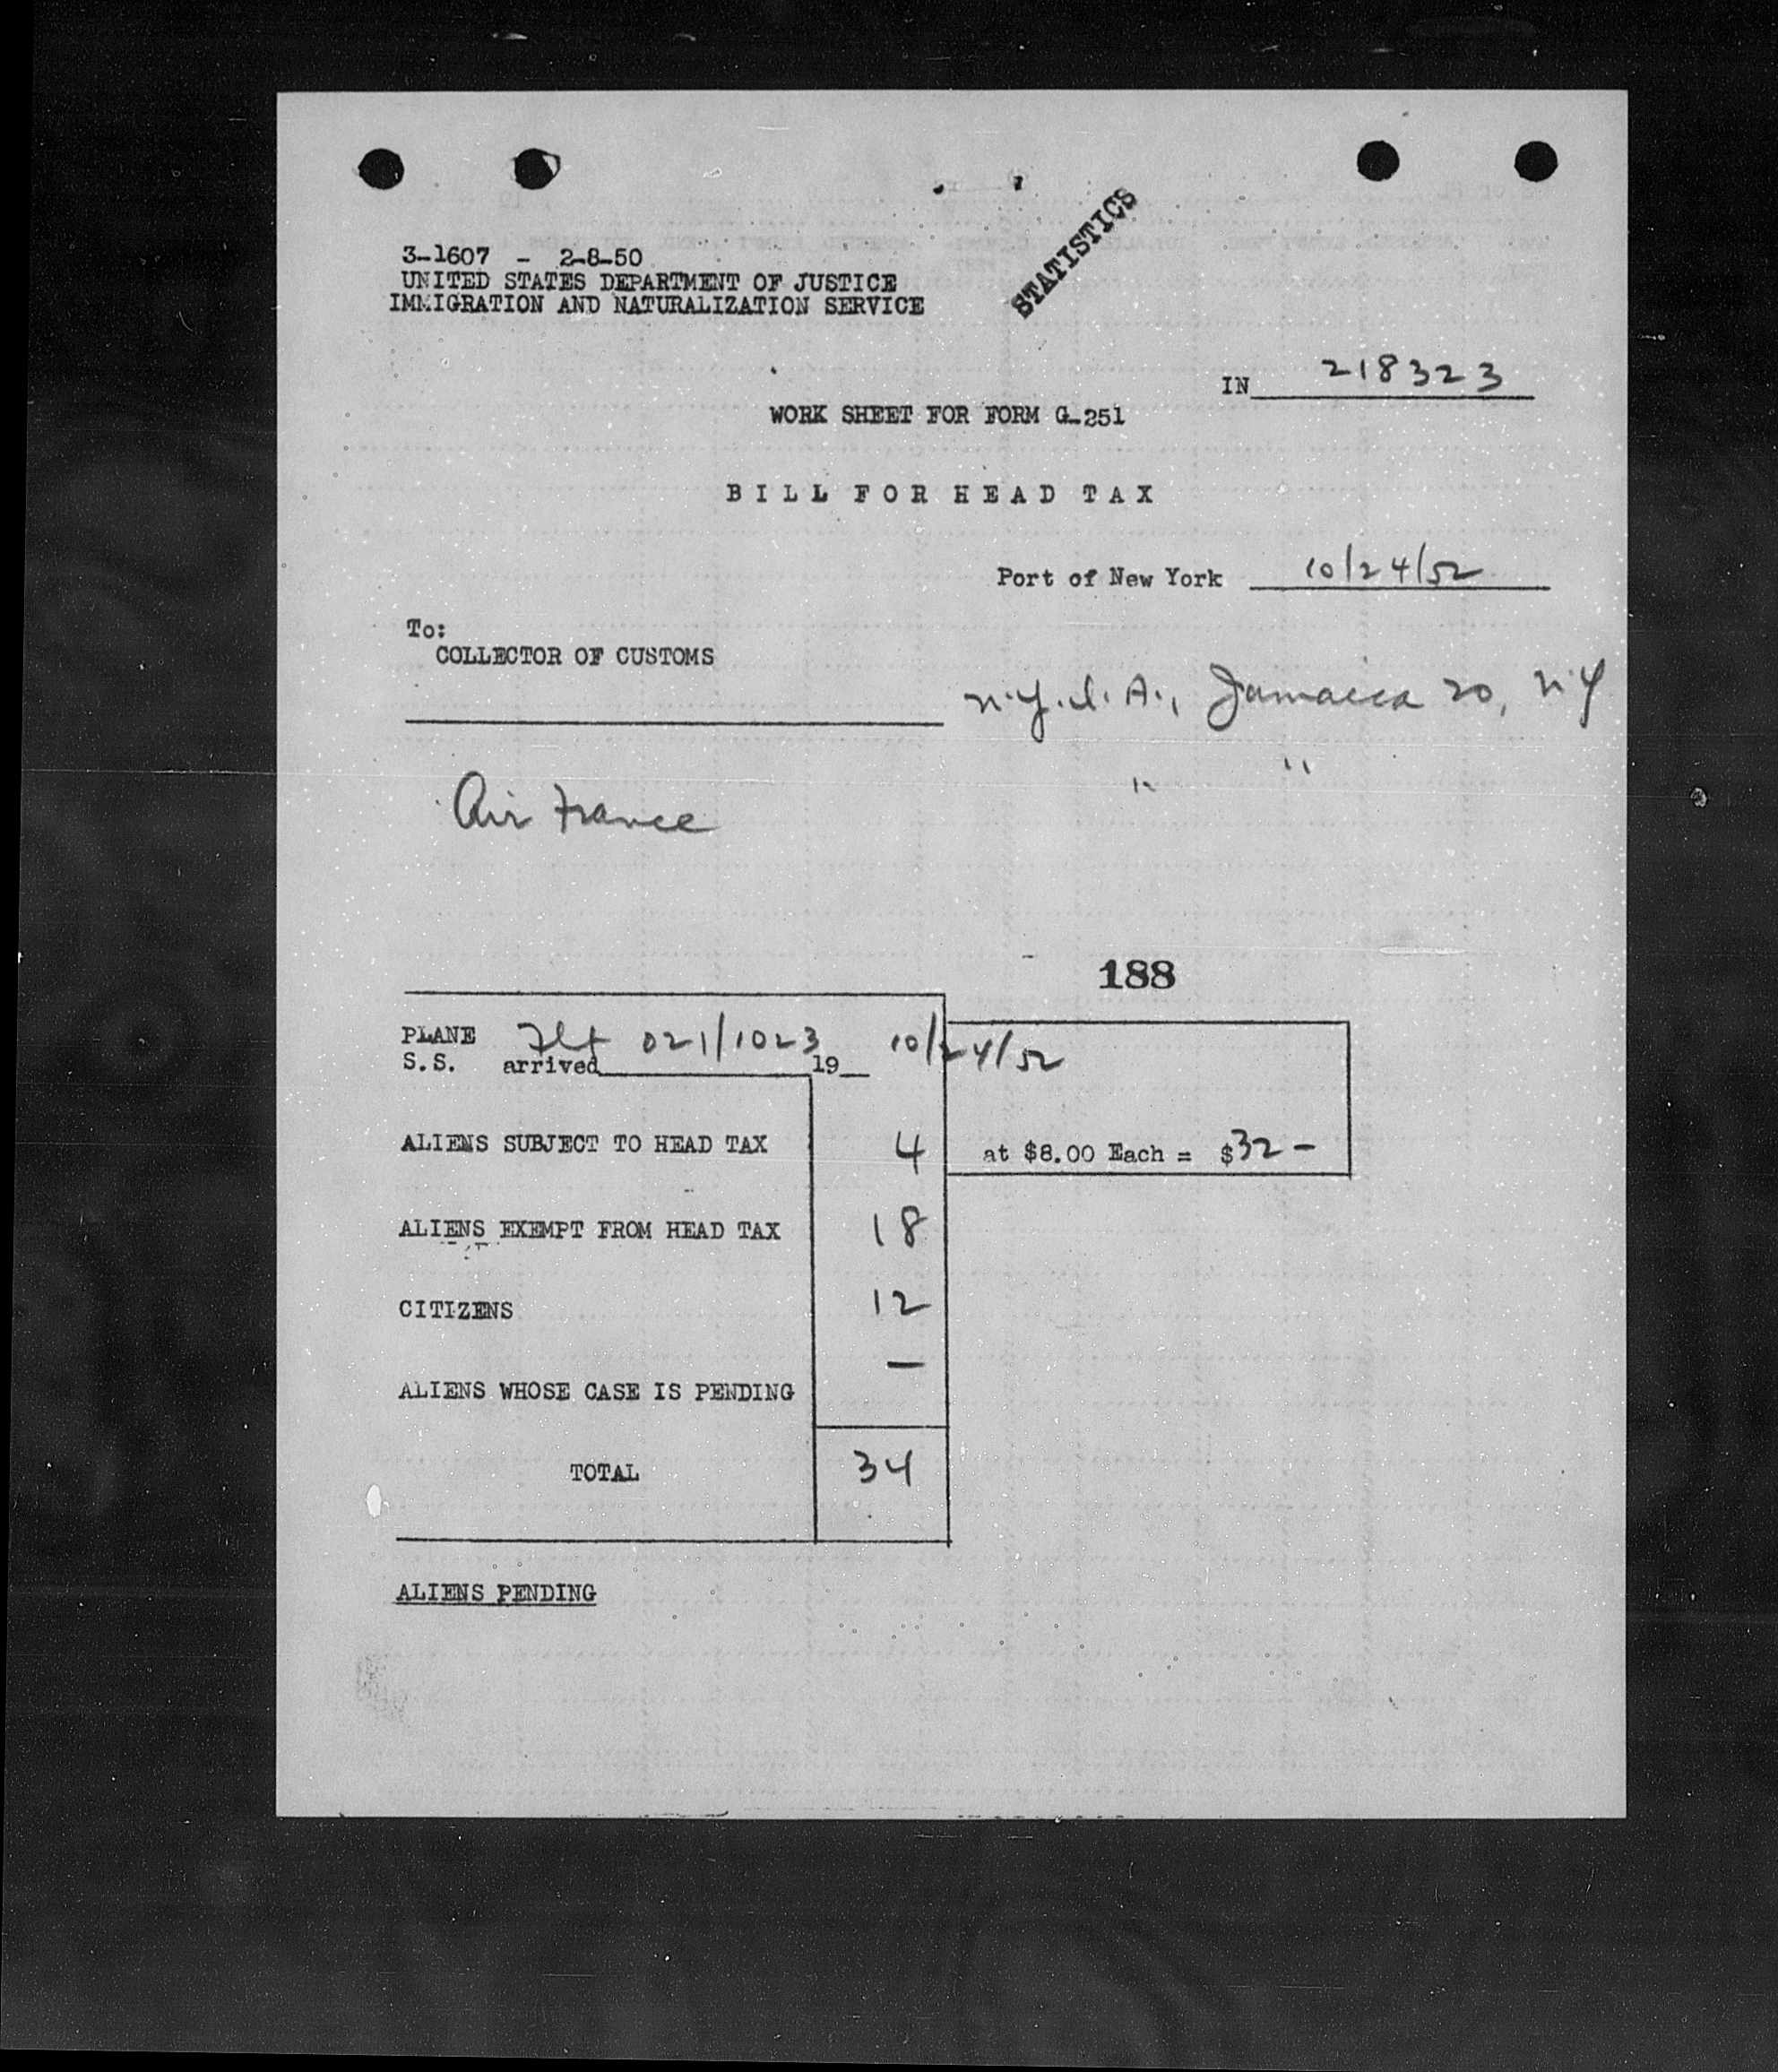 3-1607 - 2-8-50
UNITED STATES DEPARTMENT OF JUSTICE
IMMIGRATION AND NATURALIZATION SERVICE
STATISTICS
IN 218323
WORK SHEET FOR FORM G-251
BILL FOR HEAD TAX
Port of New York 10/24/52
To:
COLLECTOR OF CUSTOMS
N.Y.I.A., Jamaica 20, N.Y
" "
Air France
188
PLANE Flt 021/1023 10/24/52
S.S. arrived 19
ALIENS SUBJECT TO HEAD TAX 4 at $8.00 Each = $32 -
ALIENS EXEMPT FROM HEAD TAX 18
CITIZENS 12
ALIENS WHOSE CASE IS PENDING -
TOTAL 34
ALIENS PENDING